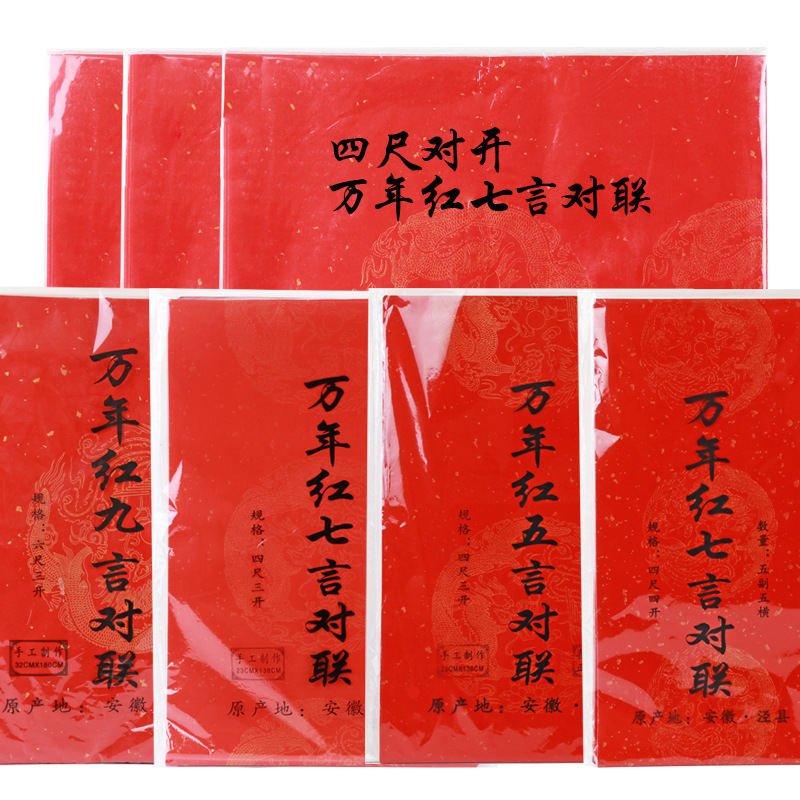 四尺对开
万年红七言对联
万年红九言对联
规格：六尺三开
手工制作
32CMX180CM
原产地：安徽
万年红七言对联
规格：四尺三开
手工制作
23CMX138CM
原产地：安徽
万年红五言对联
规格：四尺三开
手工制作
23CMX138CM
原产地：安徽·
万年红七言对联
数量：五副五横
规格：四尺四开
原产地：安徽·泾县